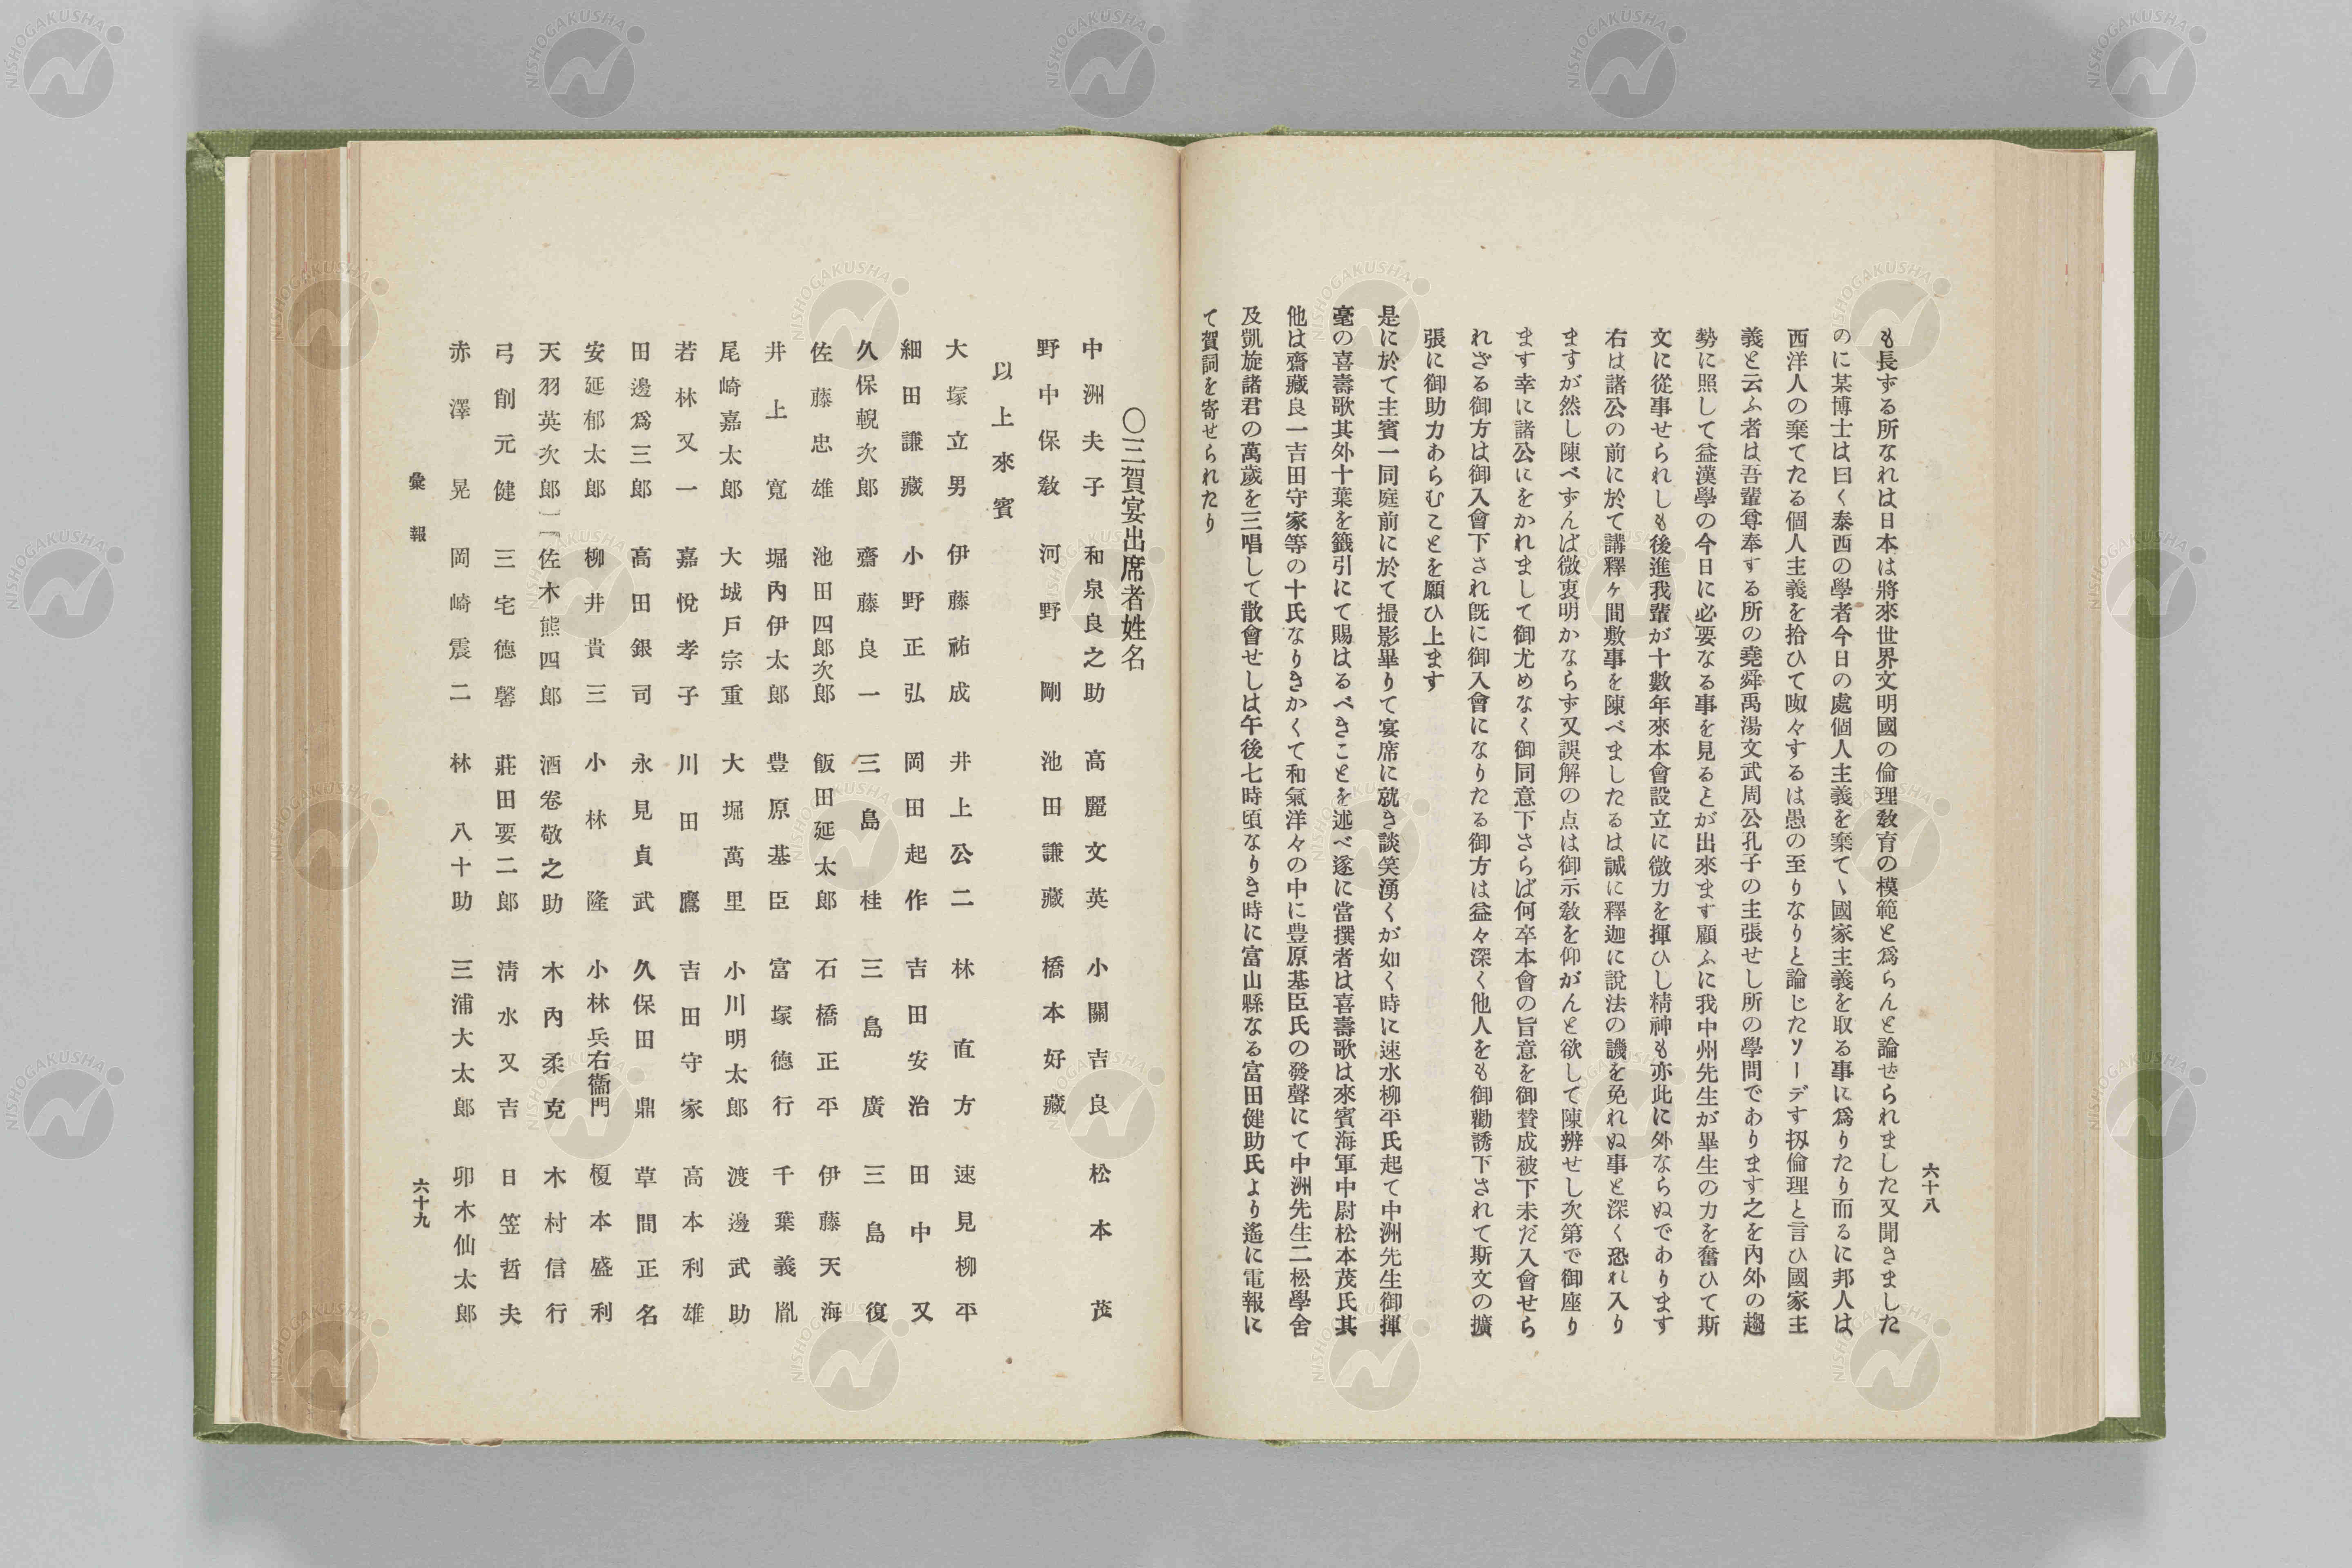 六十八
も長ずる所なれは日本は將來世界文明國の倫理敎育の模範と爲らんと論せられました又聞きました
のに某博士は曰く泰西の學者今日の處個人主義を棄てゝ國家主義を取る事に爲りたり而るに邦人は
西洋人の棄てたる個人主義を拾ひて呶々するは愚の至りなりと論じたソーデす扨倫理と言ひ國家主
義と云ふ者は吾輩尊奉する所の堯舜禹湯文武周公孔子の主張せし所の學問であります之を內外の趨
勢に照して益漢學の今日に必要なる事を見るとが出來ます顧ふに我中州先生が畢生の力を奮ひて斯
文に從事せられしも後進我輩が十數年來本會設立に微力を揮ひし精神も亦此に外ならぬであります
右は諸公の前に於て講釋ヶ間敷事を陳べましたるは誠に釋迦に說法の譏を免れぬ事と深く恐れ入り
ますが然し陳べずんば微衷明かならず又誤解の点は御示敎を仰がんと欲して陳辨せし次第で御座り
ます幸に諸公にをかれまして御尤めなく御同意下さらば何卒本會の旨意を御賛成被下未だ入會せら
れざる御方は御入會下され旣に御入會になりたる御方は益々深く他人をも御勸誘下されて斯文の擴
張に御助力あらむことを願ひ上ます
是に於て主賓一同庭前に於て撮影畢りて宴席に就き談笑湧くが如く時に速水柳平氏起て中洲先生御揮
毫の喜壽歌其外十葉を籤引にて賜はるべきことを述べ遂に當撰者は喜壽歌は來賓海軍中尉松本茂氏其
他は齋藏良一吉田守家等の十氏なりきかくて和氣洋々の中に豊原基臣氏の發聲にて中洲先生二松學舍
及凱旋諸君の萬歲を三唱して散會せしは午後七時頃なりき時に富山縣なる富田健助氏より遙に電報に
て賀詞を寄せられたり
〇三賀宴出席者姓名
中洲夫子 和泉良之助 高麗文英 小關吉良 松本茂
野中保敎 河野剛 池田謙藏 橋本好藏
以上來賓
大塚立男 伊藤祐成 井上公二 林直方 速見柳平
細田謙藏 小野正弘 岡田起作 吉田安治 田中又
久保輗次郎 齋藤良一 三島桂 三島廣 三島復
佐藤忠雄 池田四郎次郎 飯田延太郎 石橋正平 伊藤天海
井上寬 堀內伊太郎 豊原基臣 富塚德行 千葉義胤
尾崎嘉太郎 大城戶宗重 大堀萬里 小川明太郎 渡邊武助
若林又一 嘉悅孝子 川田鷹 吉田守家 高本利雄
田邊爲三郎 高田銀司 永見貞武 久保田鼎 草間正名
安延郁太郎 柳井貴三 小林隆 小林兵右衞門 榎本盛利
天羽英次郎 佐木熊四郎 酒卷敬之助 木內柔克 木村信行
弓削元健 三宅德馨 莊田要二郎 淸水又吉 日笠哲夫
赤澤晃 岡崎震二 林八十助 三浦大太郎 卯木仙太郎
彙報
六十九